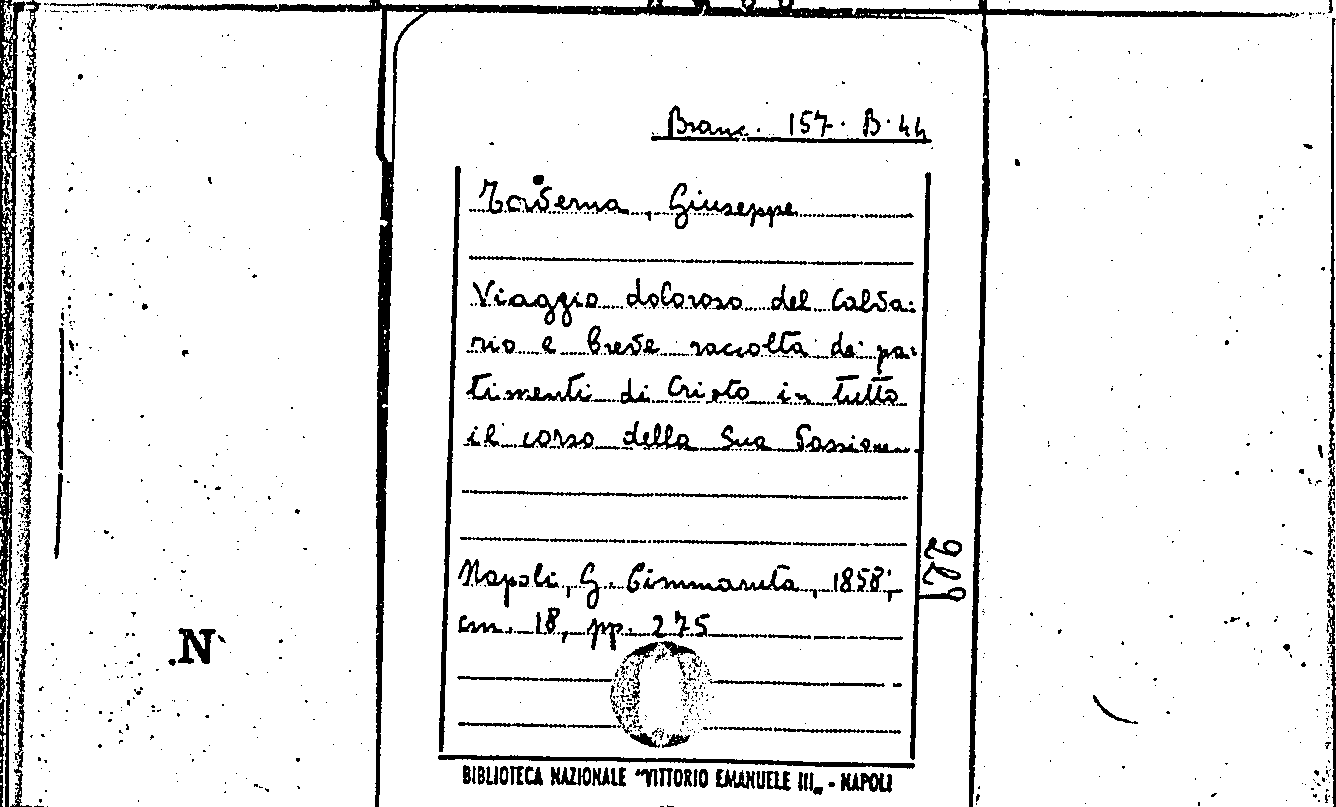 Branc. 157. B. 44
Taverna, Giuseppe
Viaggio doloroso del Calva=
rio e breve raccolta de' pa=
timenti di Cristo in tutto
il corso della Sua Passione
Napoli, G. Cimmaruta, 1858;
cm. 18, pp. 275
.N
BIBLIOTECA NAZIONALE "VITTORIO EMANUELE III„ - NAPOLI